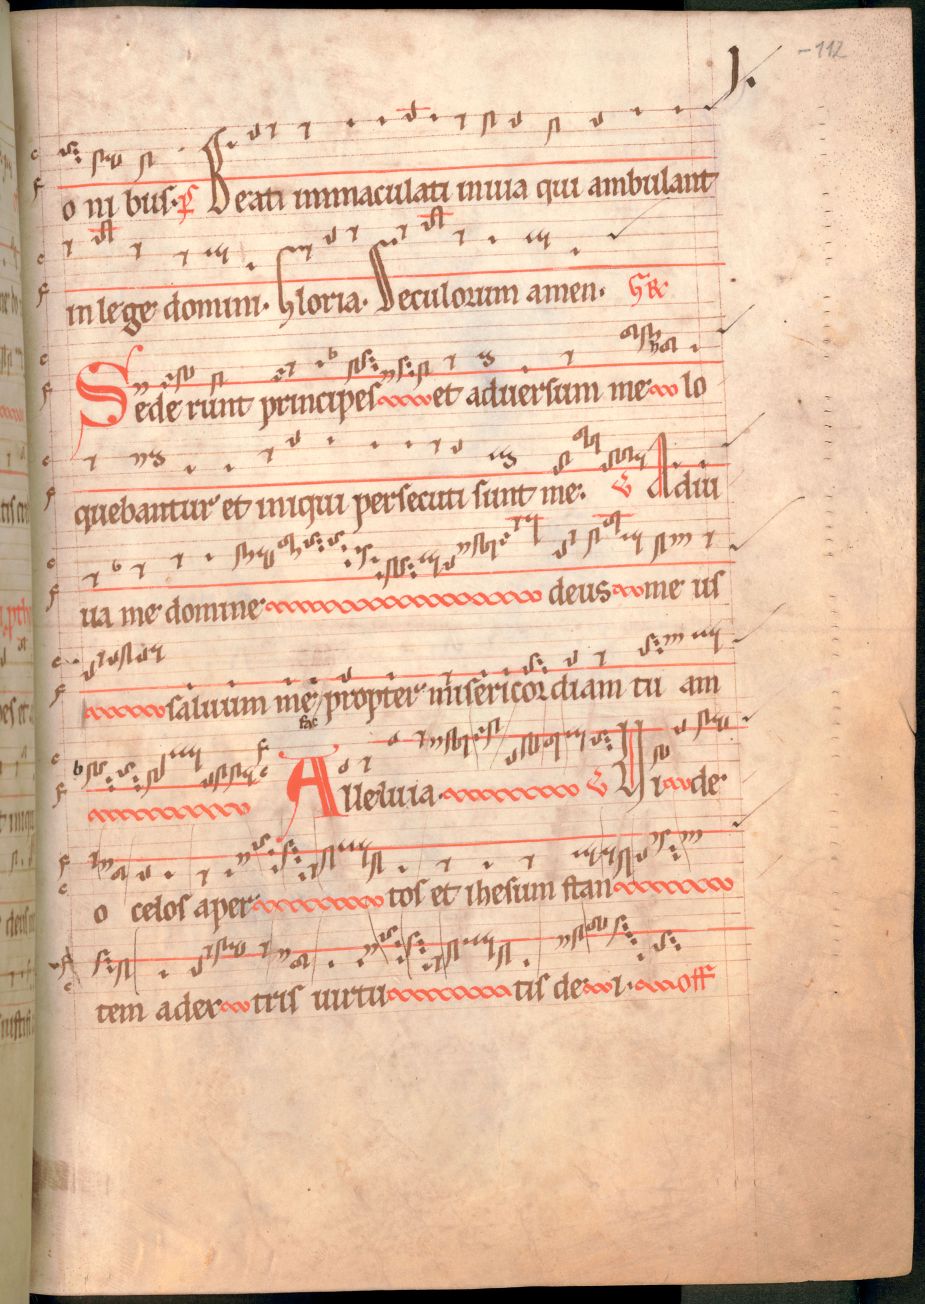 -112
o ni bus. ps Beati inmaculati inuia qui ambulant
in lege domini. Gloria. Seculorum amen. GR
Sede runt principes et aduersum me lo
quebantur et iniqui persecuti sunt me. V Adiu
ua me domine deus me us
saluum me propter misericordiam tu am
fac
Alleluia. V Vi de
o celos aper tos et ihesum stan
tem adex tris uirtu tis de i. off